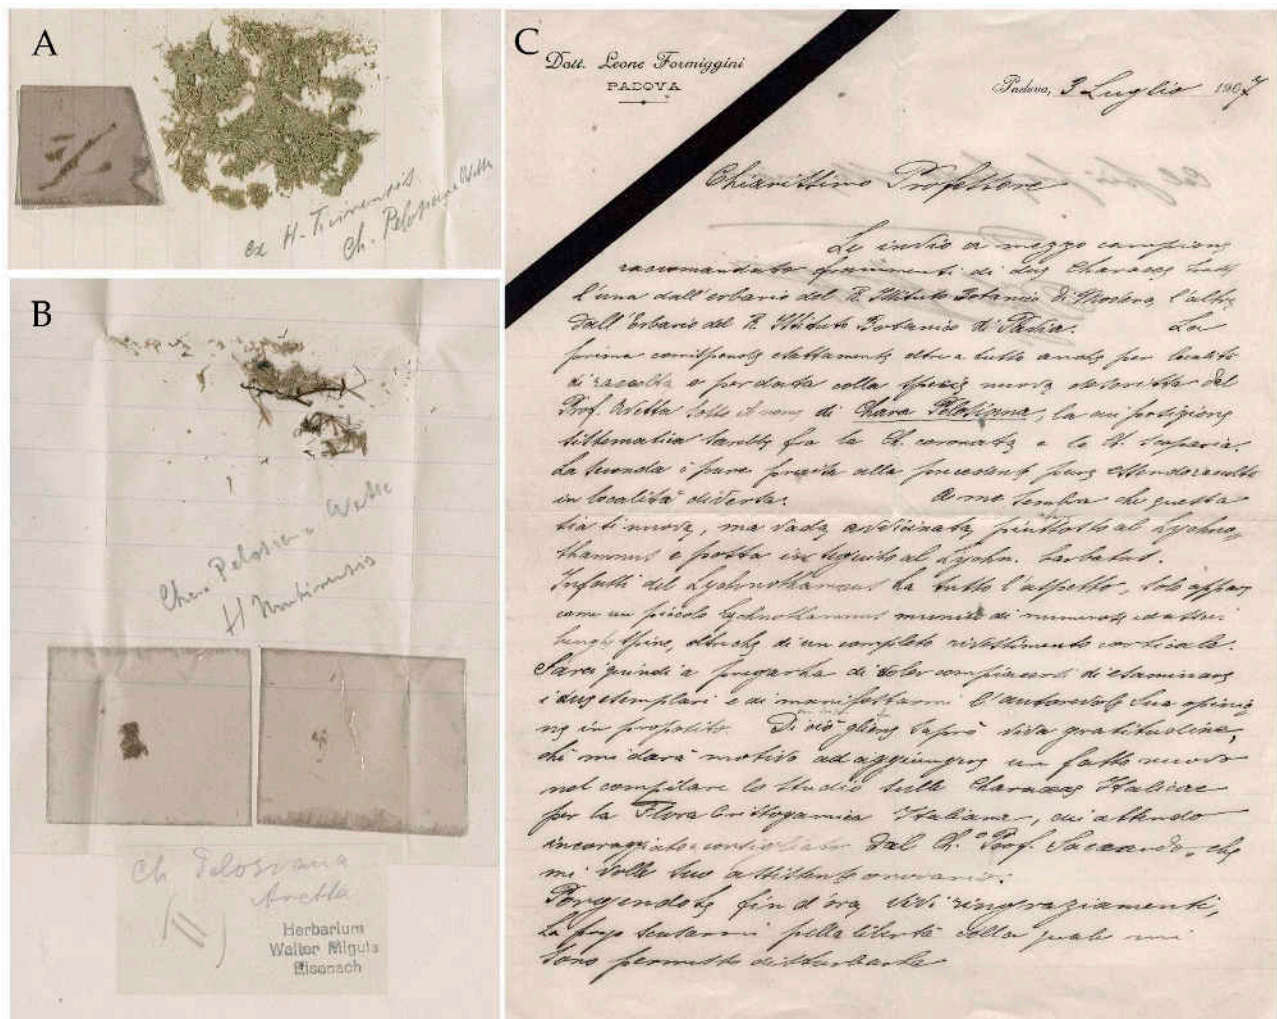 A
ex H. Ticinensis
Ch. Pelosiana Avetta
B
Chara Pelosiana Avetta
H Mutinensis
Ch Pelosiana
Avetta
(11)
Herbarium
Walter Migula
Eisenach
C
Dott. Leone Formiggini
PADOVA
Padova, 3 Luglio 1907
Chiarissimo Professore
Le invio a mezzo campione
raccomandato frammenti di due Characee
l'una dall'erbario del R. Istituto Botanico di Modena, l'altra
dall'Erbario del R. Istituto Botanico di Pavia. La
prima corrisponde esattamente oltre a tutto anche per località
di raccolta e per data colla specie nuova descritta dal
Prof. Avetta sotto il nome di Chara Pelosiana, la cui posizione
sistematica sarebbe fra la Ch. coronata e la Ch. scoparia.
La seconda è pure
in località diversa. A me sembra che questa
sia nuova, ma vada avvicinata piuttosto al Lychno-
thamnus e posta in seguito al Lychn. barbatus.
Infatti del Lychnothamnus ha tutto l'aspetto, solo appare
come un piccolo Lychnothamnus munito di numerose
lunghe spine, oltreche di un completo rivestimento corticale.
Sarei quindi a pregarla di voler compiacersi di esaminare
i due esemplari e di manifestarmi l'autorevole Sua opinio-
ne in proposito. Di ciò gliene saprò viva gratitudine,
chè mi darà motivo ad aggiungere un fatto nuovo
nel compilare lo studio sulle Characee Italicae
per la Flora Crittogamica Italiana, cui attendo
incoraggiato e consigliato dal Ch.º Prof. Saccardo, che
mi volle suo assistente onorario.
Porgendole fin d'ora vivi ringraziamenti,
La prego scusarmi pella libertà colla quale mi
sono permesso disturbarla